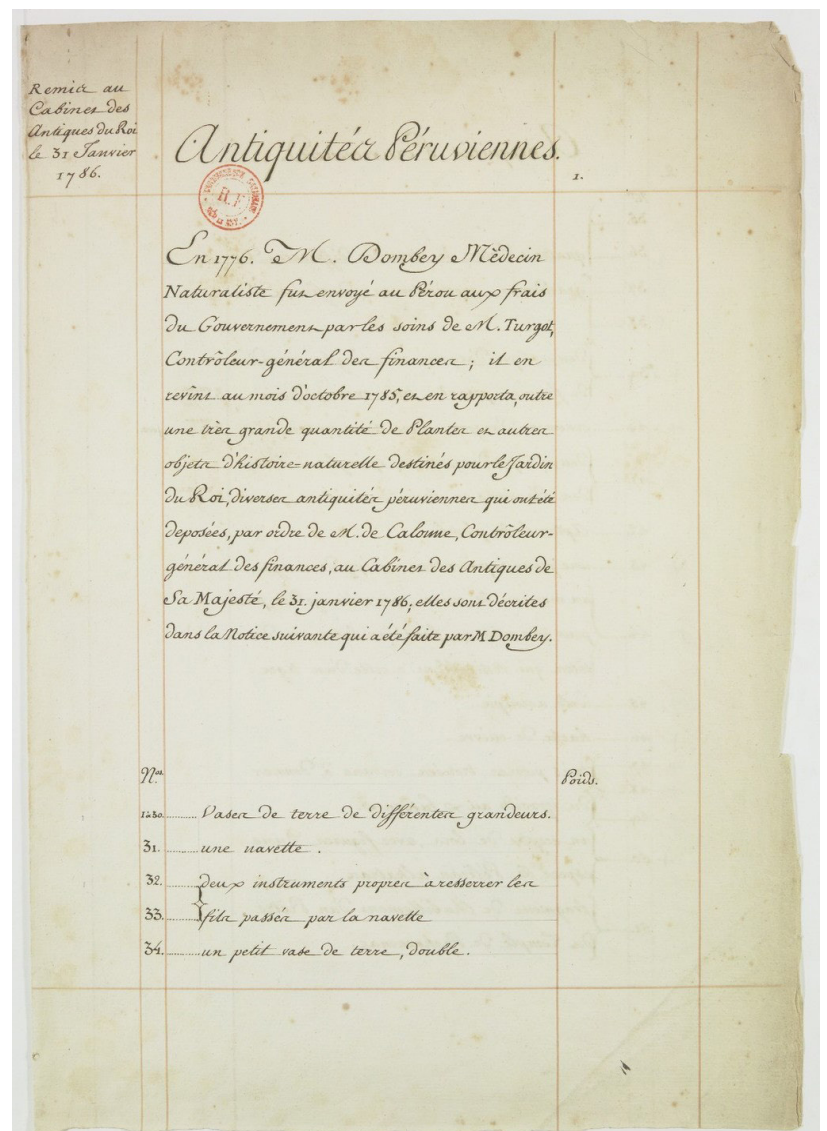 Remis au
Cabinet des
Antiques du Roi
le 31 Janvier
1786.
Antiquités Péruviennes.
1.
R.F.
En 1776. M. Dombey Médecin
Naturaliste fut envoyé au Pérou aux frais
du Gouvernement par les soins de M. Turgot,
Contrôleur-général des finances ; il en
revint au mois d'octobre 1785, et en rapporta, outre
une très grande quantité de Plantes et autres
objets d'histoire=naturelle destinés pour le Jardin
du Roi, diverses antiquités péruviennes qui ont été
deposées, par ordre de M. de Calonne, Contrôleur-
général des finances, au Cabinet des Antiques de
Sa Majesté, le 31. janvier 1786; elles sont décrites
dans la Notice suivante qui a été faite par M Dombey.
Nos. Poids.
1 à 30. Vases de terre de différentes grandeurs.
31. une navette.
32. deux instruments propres à resserrer les
33. fils passés par la navette
34. un petit vase de terre, double.